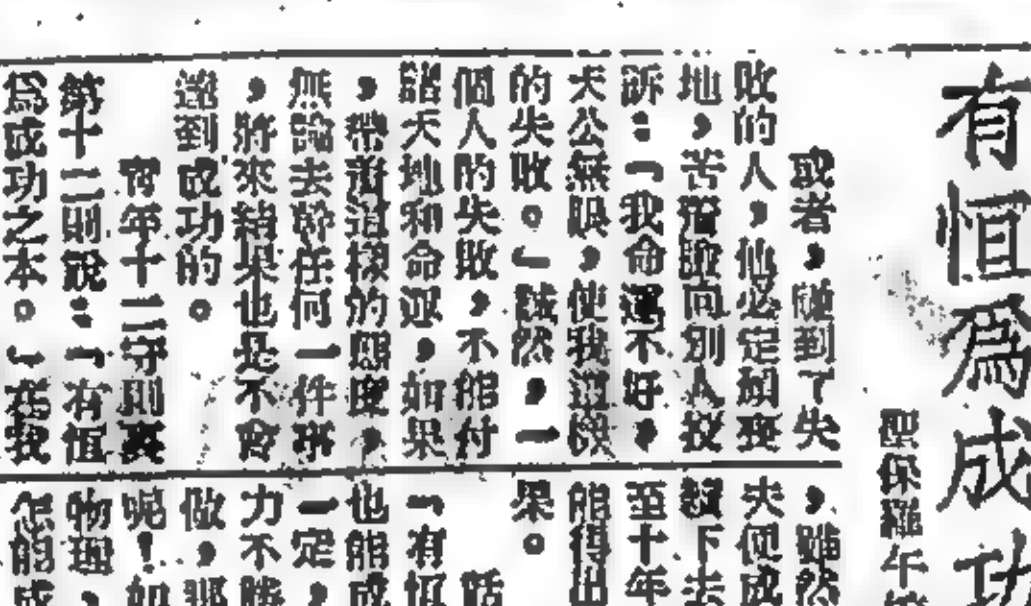 有恒爲成功
聖保羅午
或者，碰到了失
敗的人，他必定頹喪
地，苦着臉向別人投
訴：「我命運不好，
天公無眼，使我這樣
的失敗。」誠然，一
個人的失敗，不能付
諸天地和命運，如果
，帶着這樣的態度，
無論去幹任何一件事
，將來結果也是不會
達到成功的。
青年十二守則裏
第十二則說：「有恒
爲成功之本。」在我
，雖然
夫便成
下去
至十年
能得出
果。
話
「有恒
也能成
一定，
力不勝
做，那
呢！如
物理，
怎能成